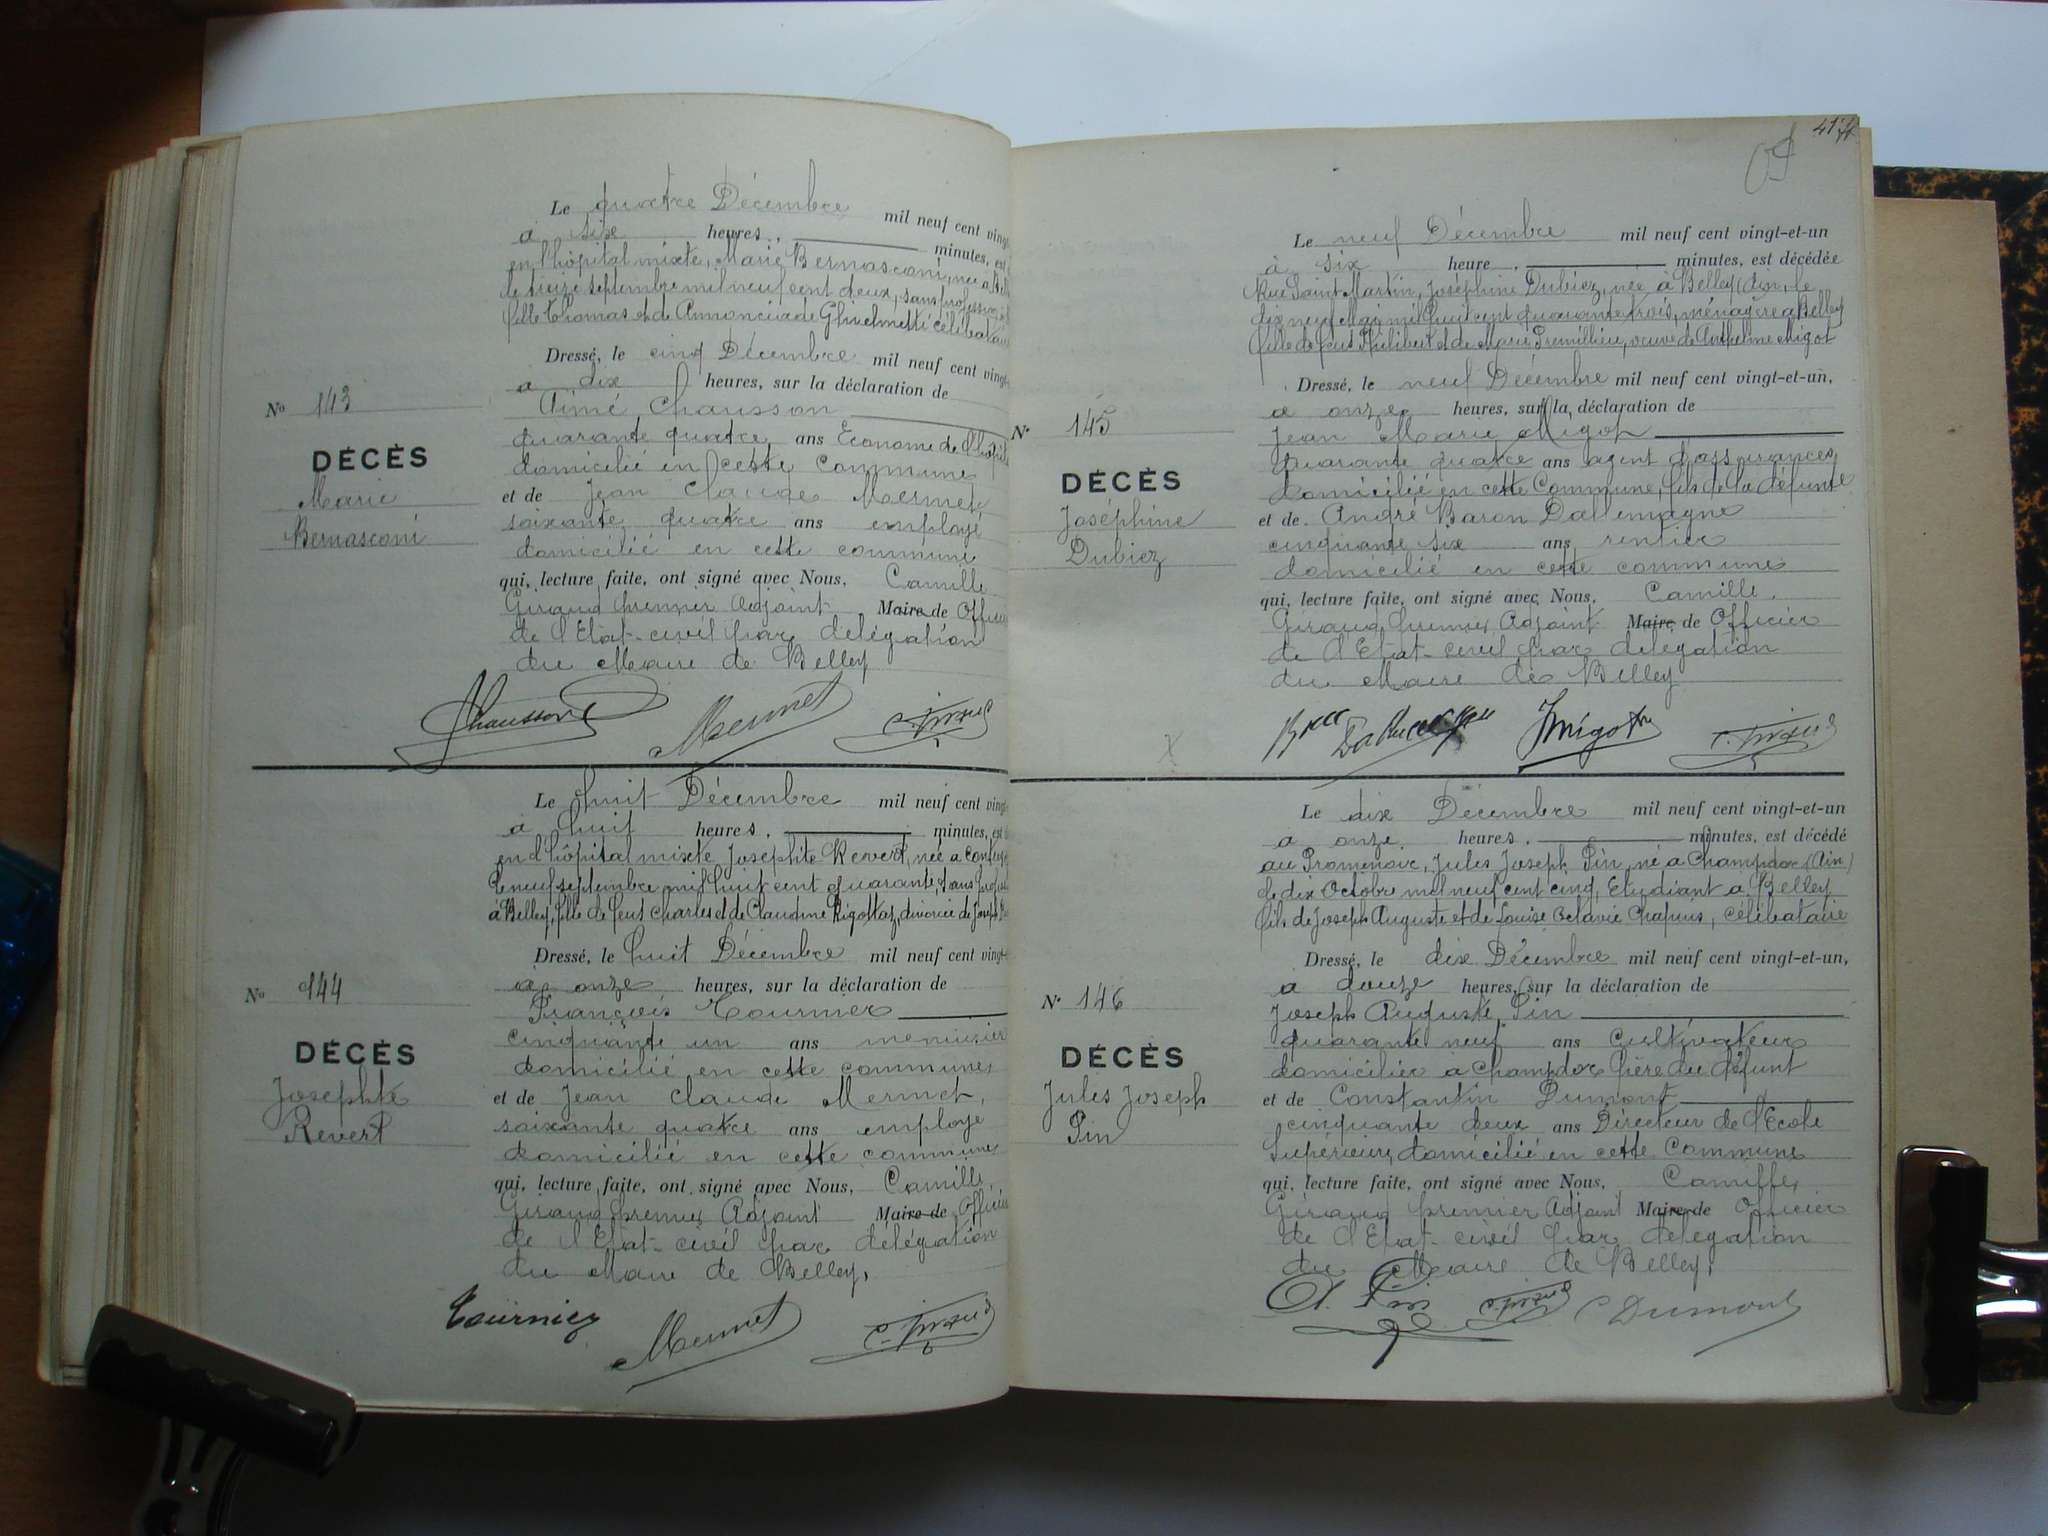 Le quatre Décembre mil neuf cent vingt
à six heures, minutes, est
en l'hôpital mixte, Marie Bernasconi, née à Bell
le treize septembre mil neuf cent deux, sans profession,
fille Thomas et de Annonciade Ghielmetti célibataire
Dressé, le cinq Décembre mil neuf cent vingt-
à dix heures, sur la déclaration de
Aimé Chausson
quarante quatre ans Econome de l'hôpit
domicilié en cette commune
et de Jean Claude Mermet
soixante quatre ans employé
domicilié en cette commune
qui, lecture faite, ont signé avec Nous, Camille
Giraud premier Adjoint Maire de Officier
de l'Etat-civil par délégation
du Maire de Belley
Chausson Mermet C. Giraud
No 143
DÉCÈS
Marie
Bernasconi
Le huit Décembre mil neuf cent vingt
à huit heures, minutes, est
en l'hôpital mixte Josephte Revert, née à
le neuf septembre mil huit cent quarante, sans profess
à Belley, fille de feus Charles et de Claudine Rigottaz, divorcée de Joseph
Dressé, le huit Décembre mil neuf cent vingt-
à onze heures, sur la déclaration de
François Tournier
cinquante un ans menuisier
domicilié en cette commune
et de Jean Claude Mermet,
soixante quatre ans employé
domicilié en cette commune
qui, lecture faite, ont signé avec Nous, Camille
Giraud premier Adjoint Maire de Officier
de l'Etat-civil par délégation
du Maire de Belley,
Tournier Mermet C. Giraud
No 144
DÉCÈS
Josephte
Revert
Le neuf Décembre mil neuf cent vingt-et-un
à six heure, minutes, est décédée
Rue Saint Martin, Joséphine Dubiez, née à Belley (Ain, le
dix neuf Mai mil huit cent quarante trois, ménagère à Belley
fille de feus Philibert et de Marie Premillieu, veuve de Anthelme Migot
Dressé, le neuf Décembre mil neuf cent vingt-et-un,
à onze heures, sur la déclaration de
Jean Marie Migot
quarante quatre ans agent d'assurances
domicilié en cette Commune, fils de la défunte
et de André Baron Dallemagne
cinquante six ans rentier
domicilié en cette commune
qui, lecture faite, ont signé avec Nous, Camille
Giraud premier Adjoint Maire de Officier
de l'Etat-civil par délégation
du Maire de Belley
JMigot C. Giraud
No 145
DÉCÈS
Joséphine
Dubiez
Le dix Décembre mil neuf cent vingt-et-un
à onze heures, minutes, est décédé
au Promenoir, Jules Joseph Pin, né à Champdor (Ain)
le dix Octobre mil neuf cent cinq, Etudiant à Belley
fils de Joseph Auguste et de Louise Octavie Chapuis, célibataire
Dressé, le dix Décembre mil neuf cent vingt-et-un,
à douze heures, sur la déclaration de
Joseph Auguste Pin
quarante neuf ans Cultivateur
domicilié à Champdor père du défunt
et de Constantin Dumont
cinquante deux ans Directeur de l'Ecole
Supérieure, domicilié en cette Commune
qui, lecture faite, ont signé avec Nous, Camille
Giraud premier Adjoint Maire de Officier
de l'Etat-civil par délégation
du Maire de Belley,
A. Pin C. Giraud C Dumont
No 146
DÉCÈS
Jules Joseph
Pin